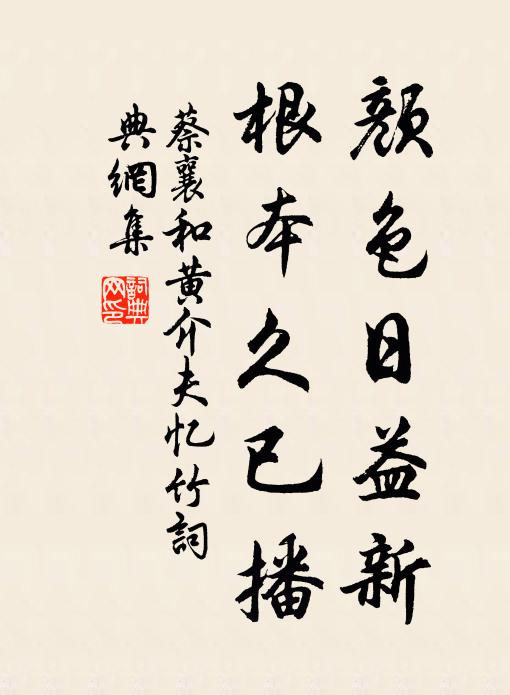 顏色日益新
根本久已播
蔡襄和黄介夫忆竹詞
典網集
詞典
网印